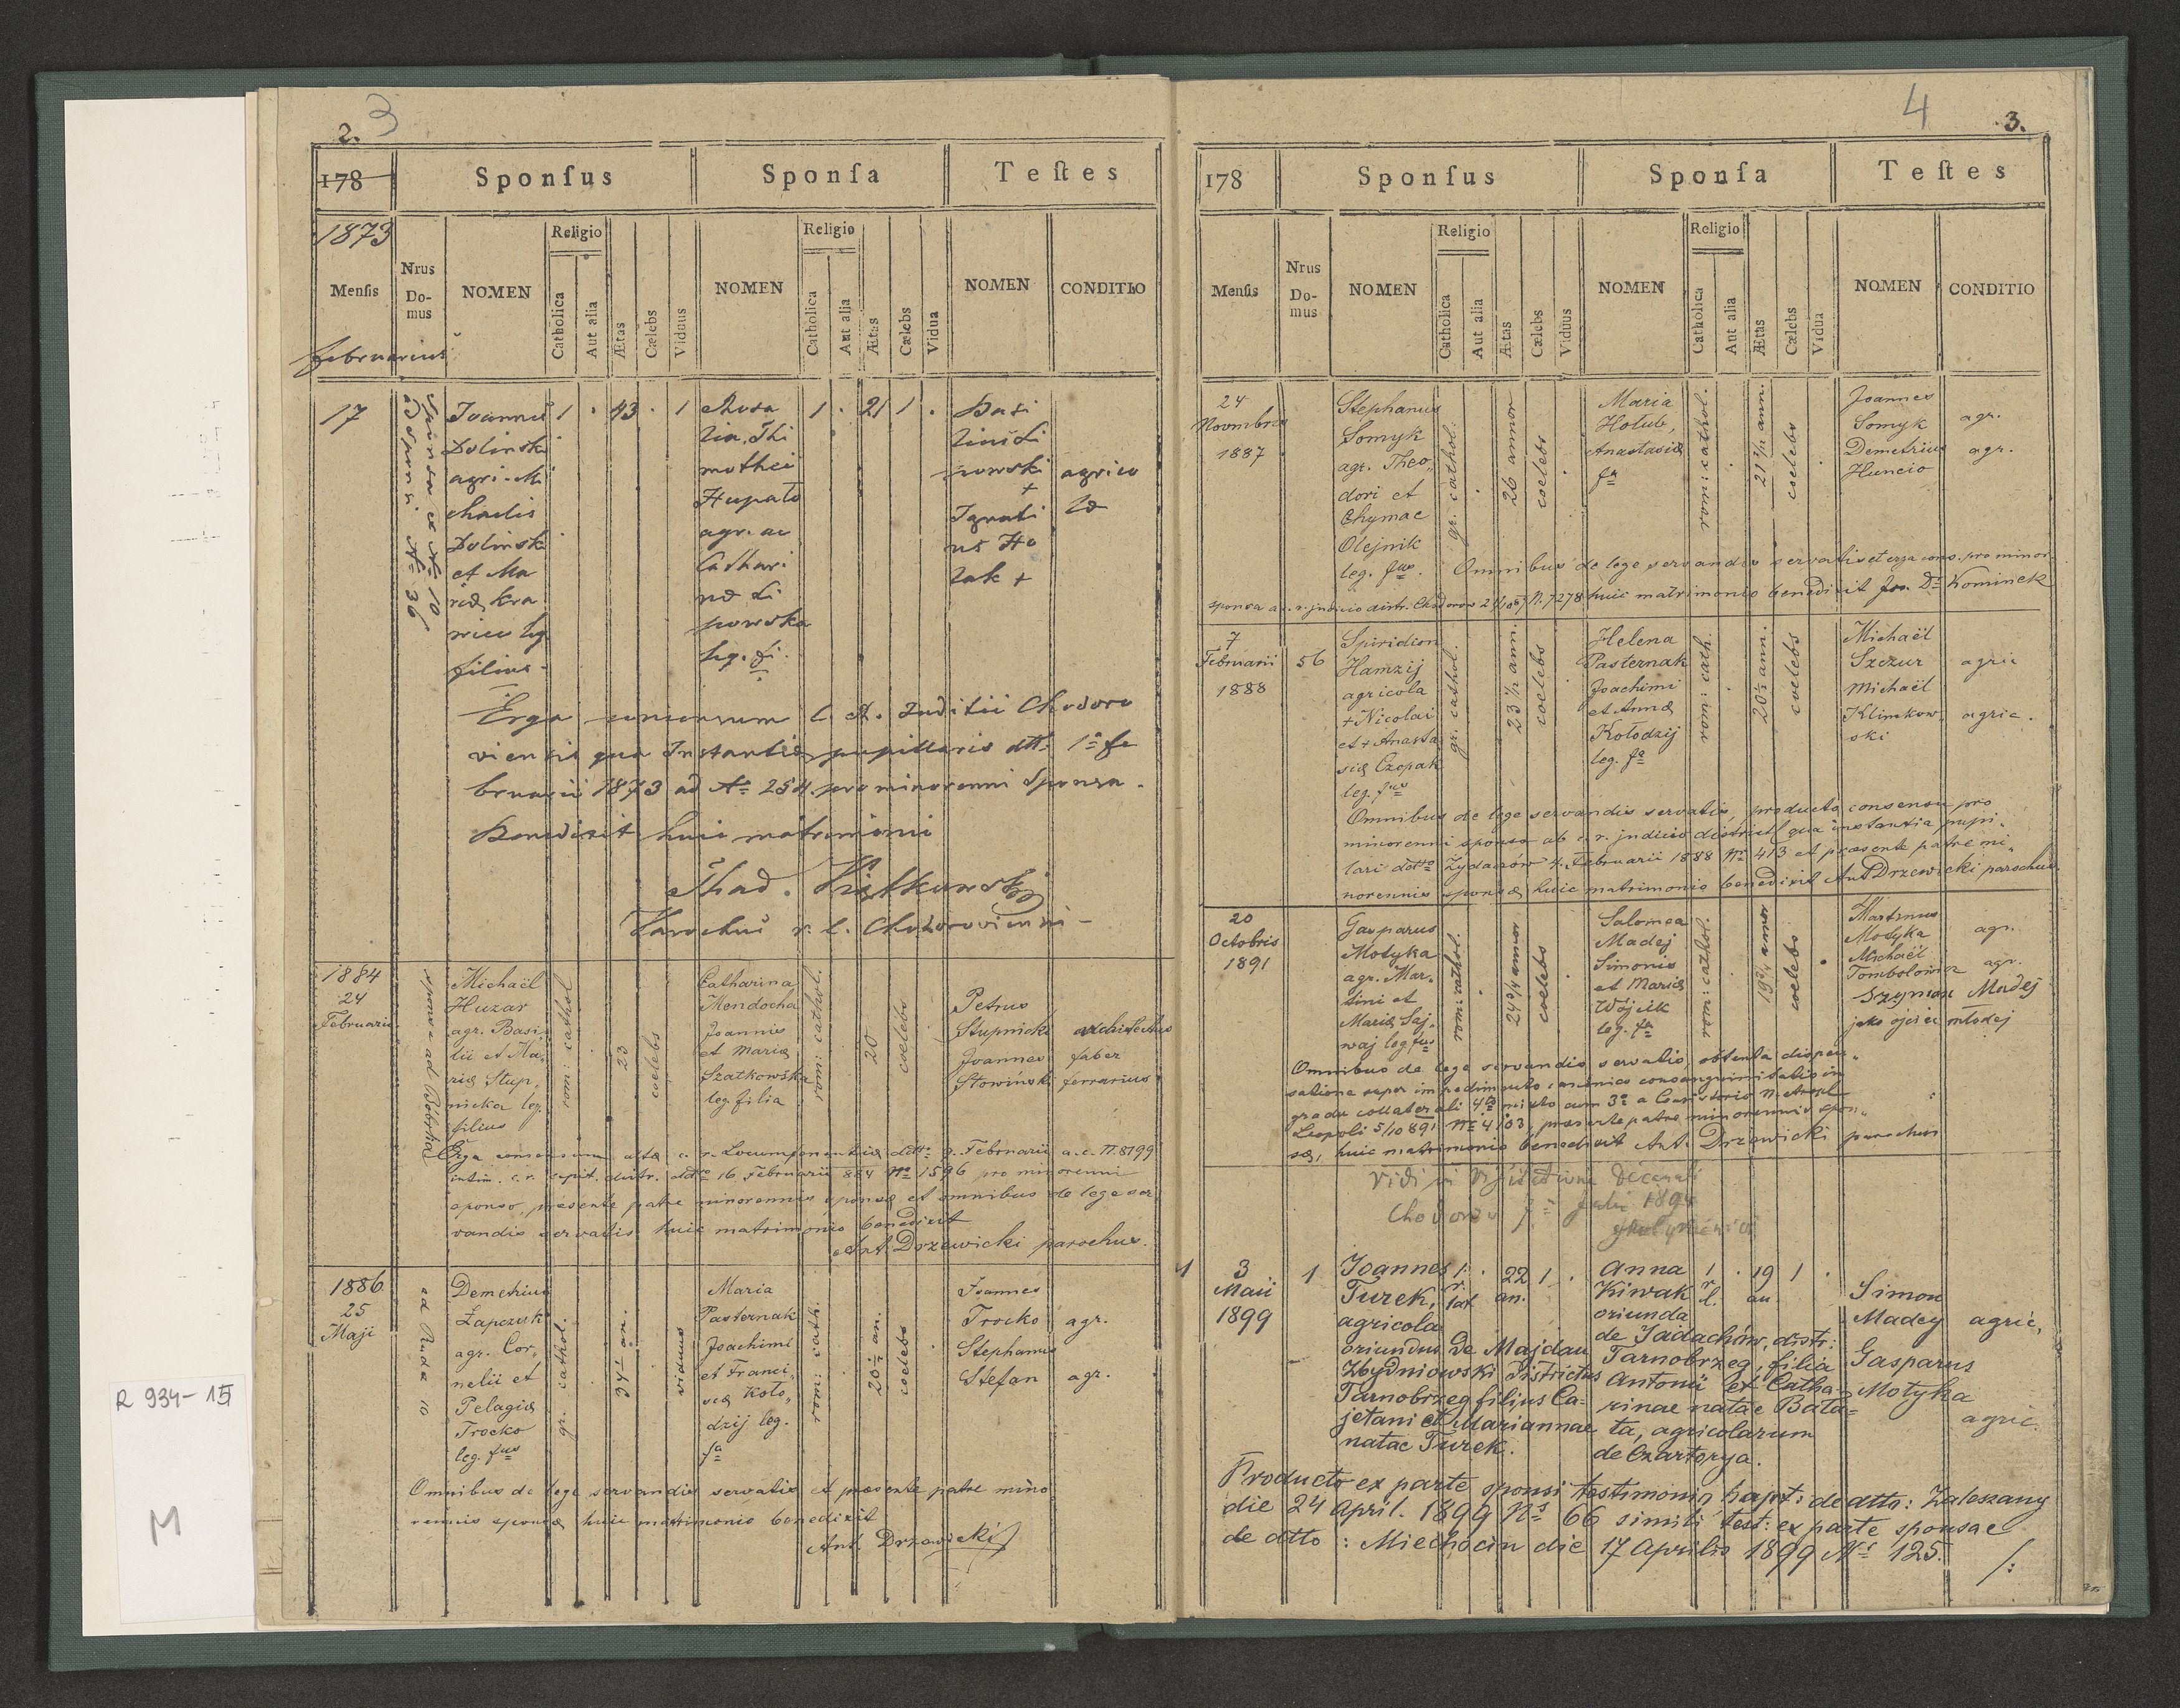 2. 3
178 Sponſus Sponſa Teſtes
1873
Menſis Nrus Domus NOMEN Religio Catholica Aut alia Ætas Cælebs Viduus NOMEN Religio Catholica Aut alia Ætas Cælebs Vidua NOMEN CONDITIO
februarius
17
Sponsa et No 10
Sponsi No 36
Joannes
Dolinski
agri. Mi
chaelis
Dolinski
et Ma
riæ Kra
wiec leg
filius
1 . 43 . 1
Rosa
lia Thi
mothei
Hupalo
agr. ac
Cathari
næ Li
powska
leg. fi.
1 . 21 1 .
Basi
lius Li
powski
+
Ignati
us Ho
lak +
agrico
læ
Erga consensum C. R. Juditii Chodoro
viensis qua Instantiæ pupillaris dtt. 1ª fe
bruarii 1873 ad No 254. pro minorenni Sponsa.
Benedixit huic matrimonii
Thad. Kiątkowski
Parochus r. l. Chodoroviensi
1884
24
Februarii
sponsa ad Bóbrka
Michaël
Huzar
agr. Basi„
lii et Ma„
riæ Stup„
nicka leg.
filius
rom: cathol
23
coelebs
Catharina
Mendocha
Joannis
et Mariæ
Szatkowska
leg. filia
rom: cathol.
20
coelebs
Petrus
Stupnicki architectus
Joannes faber
Słowiński ferrarius
Erga consensum altæ c. r. Locumtenentiæ ddtto 9. Februarii a. c. N. 8199
intim. c. r. capit. distr. ddtto 16. Februarii 884 No 1596 pro minorenni
sponso, præsente patre minorennis sponsæ et omnibus de lege ser
vandis servatis huic matrimonio benedixit
Ant. Drzewicki parochus.
1886
25
Maji
ad Ruda 10
Demetrius
Łapczuk
agr. Cor„
nelii et
Pelagiæ
Trocko
leg. fus
gr. cathol.
34 1/2 an.
viduus
Maria
Pasternak
Joachimi
et Franci„
scæ Koło„
dzij leg.
fa
rom: cath.
20 1/2 an.
coelebs
Joannes
Trocko agr.
Stephanus
Stefan agr.
Omnibus de lege servandis servatis et præsente patre mino
rennis sponsæ huic matrimonio benedixit
Ant. Drzewicki
R 934-15
M
4 3.
178 Sponſus Sponſa Teſtes
Menſis Nrus Domus NOMEN Religio Catholica Aut alia Ætas Cælebs Viduus NOMEN Religio Catholica Aut alia Ætas Cælebs Vidua NOMEN CONDITIO
24
Novmbris
1887
Stephanus
Somyk
agr. Theo„
dori et
Chymae
Olejnik
leg. fus.
gr. cathol.
26 annor
coelebs
Maria
Hołub,
Anastasiæ
fa
rom: cathol.
21 2/12 ann.
coelebs
Joannes
Somyk agr.
Demetrius agr.
Huncio
Omnibus de lege servandis servatis et erga cons. pro minor
sponsa a c. r. judicio distr. Chodorow N. 7278 huic matrimonio benedixit Jos. Dr Kominek
7
Februarii
1888
56
Spiridion
Hamzij
agricola
+ Nicolai
et + Anasta
siæ Czopak
leg. fus
gr. cathol.
23 1/2 ann.
coelebs
Helena
Pasternak
Joachimi
et Annæ
Kołodzij
leg. fa
rom: cath.
20 1/2 ann.
coelebs
Michaël
Szczur agric
Michaël
Klimkow agric.
ski
Omnibus de lege servandis servatis, producto consensu pro
minorenni sponso ab c. r. judicio district. qua instantia pupi„
lari ddtto Żydaczów 4. Februarii 1888 No 413 et præsente patre mi„
norennis sponsæ huic matrimonio benedixit Ant Drzewicki parochus.
20
Octobris
1891
Gasparus
Motyka
agr. Mar„
tini et
Mariæ Saj„
waj leg fus
rom: cathol.
24 3/4 annor
coelebs
Salomea
Madej
Simonis
et Mariæ
Wójcik
leg. fa
rom: cathol.
19 3/4 annor
coelebs
Martinus
Motyka agr.
Michaël
Tombolowicz agr.
Szymon Madej
jako ojciec młodej
Omnibus de lege servandis servatis, obtenta dispen„
satione super impedimento canonico consanguinitatis in
gradu collaterali 4to mixto cum 3o a Consistorio Metropl
Leopoli 5/10 891 No 4103, præsente patre minorennis spon„
sæ, huic matrimonio benedixit Ant. Drzewicki parochus
Vidi in Visitatione Decanali
Chodorów Julii 1894
1
3
Maii
1899
1
Joannes
Turek,
agricola
oriundus De Majdan
Zbydniowski Districtus
Tarnobrzeg filius Ca-
jetani et Mariannae
natae Turek.
1. r. lat . 22 an. 1 .
Anna
Kiwak
oriunda
de Jadachów, distr:
Tarnobrzeg, filia
Antonii et Catha-
rinae natae Bata-
ta, agricolarum
de Czartorya.
1 r. l. . 19 an 1 .
Simon
Madey agric,
Gasparus
Motyka
agric.
Producto ex parte sponsi testimonio bapt: de dtto: Zaleszany
die 24 April. 1899 No 66 simili test: ex parte sponsae
de dtto: Miechocin die 17 Aprilis 1899 No 125. /: